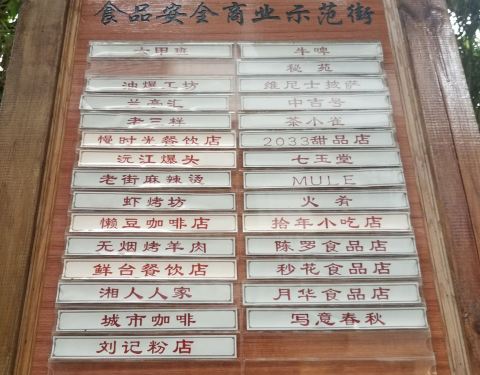 食品安全商业示范街
六甲班
牛啤
秘苑
油爆工坊
维尼士披萨
兰高汇
中吉号
老三样
茶小雀
慢时光餐饮店
2033甜品店
沅江爆头
七玉堂
老街麻辣烫
MULE
虾烤坊
火肴
懒豆咖啡店
拾年小吃店
无烟烤羊肉
陈罗食品店
鲜台餐饮店
秒花食品店
湘人人家
月华食品店
城市咖啡
写意春秋
刘记粉店